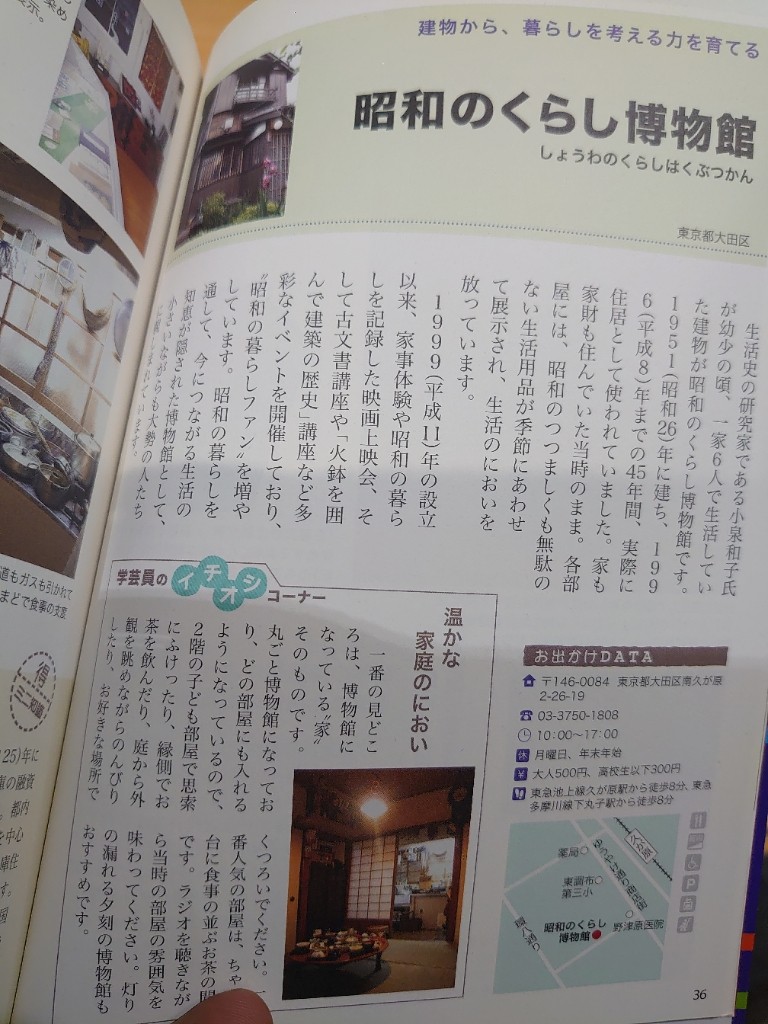 建物から、暮らしを考える力を育てる
昭和のくらし博物館
しょうわのくらしはくぶつかん
東京都大田区
生活史の研究家である小泉和子氏
が幼少の頃、一家6人で生活してい
た建物が昭和のくらし博物館です。
1951(昭和26)年に建ち、199
6(平成8)年までの45年間、実際に
住居として使われていました。家も
家財も住んでいた当時のまま。各部
屋には、昭和のつつましくも無駄の
ない生活用品が季節にあわせ
て展示され、生活のにおいを
放っています。
1999(平成11)年の設立
以来、家事体験や昭和の暮ら
しを記録した映画上映会、そ
して古文書講座や「火鉢を囲
んで建築の歴史」講座など多
彩なイベントを開催しており、
“昭和の暮らしファン”を増や
しています。昭和の暮らしを
通して、今につながる生活の
知恵が隠された博物館として、
小さいながらも大勢の人たち
に親しまれています。
学芸員の
イチオシ
コーナー
温かな
家庭のにおい
一番の見どこ
ろは、博物館に
なっている“家”
そのものです。
丸ごと博物館になってお
り、どの部屋にも入れる
ようになっているので、
2階の子ども部屋で思索
にふけったり、縁側でお
茶を飲んだり、庭から外
観を眺めながらのんびり
したり、お好きな場所で
くつろいでください。一
番人気の部屋は、ちゃ
台に食事の並ぶお茶の間
です。ラジオを聴きなが
ら当時の部屋の雰囲気を
味わってください。灯り
の漏れる夕刻の博物館も
おすすめです。
お出かけDATA
〒146-0084 東京都大田区南久が原
2-26-19
03-3750-1808
10:00〜17:00
休 月曜日、年末年始
¥ 大人500円、高校生以下300円
東急池上線久が原駅から徒歩8分、東急
多摩川線下丸子駅から徒歩8分
久が原
薬局
ゆうやけ通り商店街
東調布
第三小
昭和のくらし
博物館
野津原医院
環八通り
P
36
示。
道もガスも引かれて
まどで食事の支度
得
ミニ知識
25)年に
の融資
都内
中心